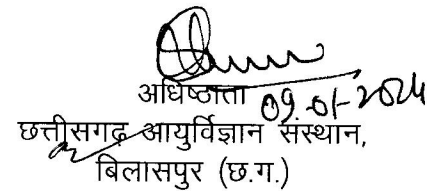 अधिष्ठाता 09.01-2024
छत्तीसगढ़ आयुर्विज्ञान संस्थान,
बिलासपुर (छ.ग.)